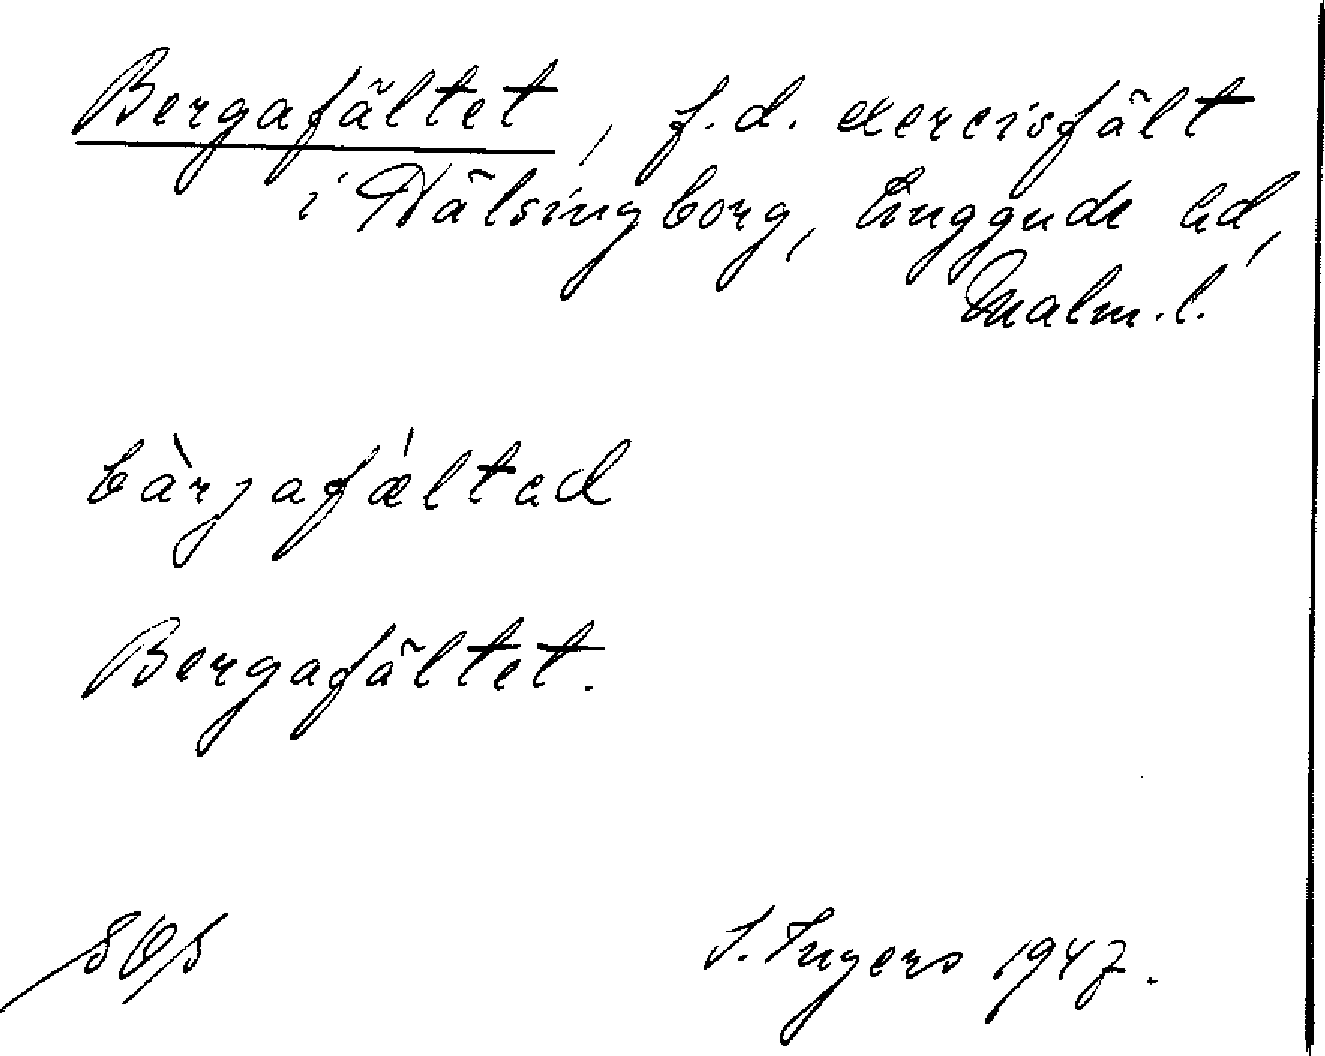 Bergafältet, f.d. exercisfält
i Hälsingborg, Luggude hd,
Malm.l.
bàrjafæ̍ltəd
Bergafältet.
I. Ingers 1947.